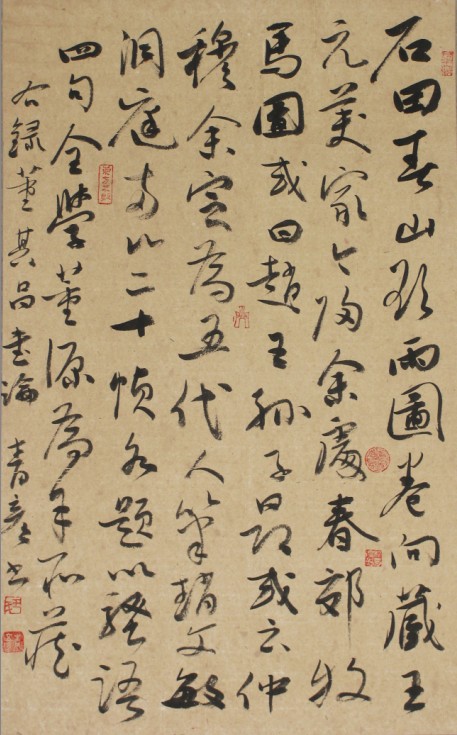 石田春山欲雨圖卷向藏王
元美家今歸余處春郊牧
馬圖或曰趙王孫子昂或云仲
穆余定為五代人筆趙文敏
洞庭兩山二十幀各題以騷語
四句全學董源為予所藏
右録董其昌畫論 青